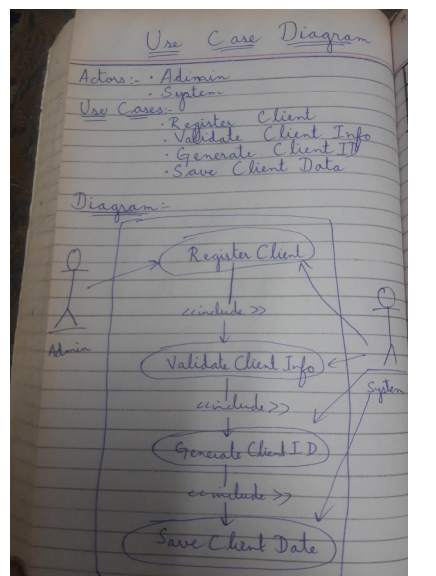 Use Case Diagram
Actors:- · Adimin
· System
Use Cases:-
· Register Client
· Validate Client Info
· Generate Client ID
· Save Client Data
Diagram:-
Register Client
<<include>>
Admin
Validate Client Info
System
<<include>>
Generate Client ID
<<include>>
Save Client Date